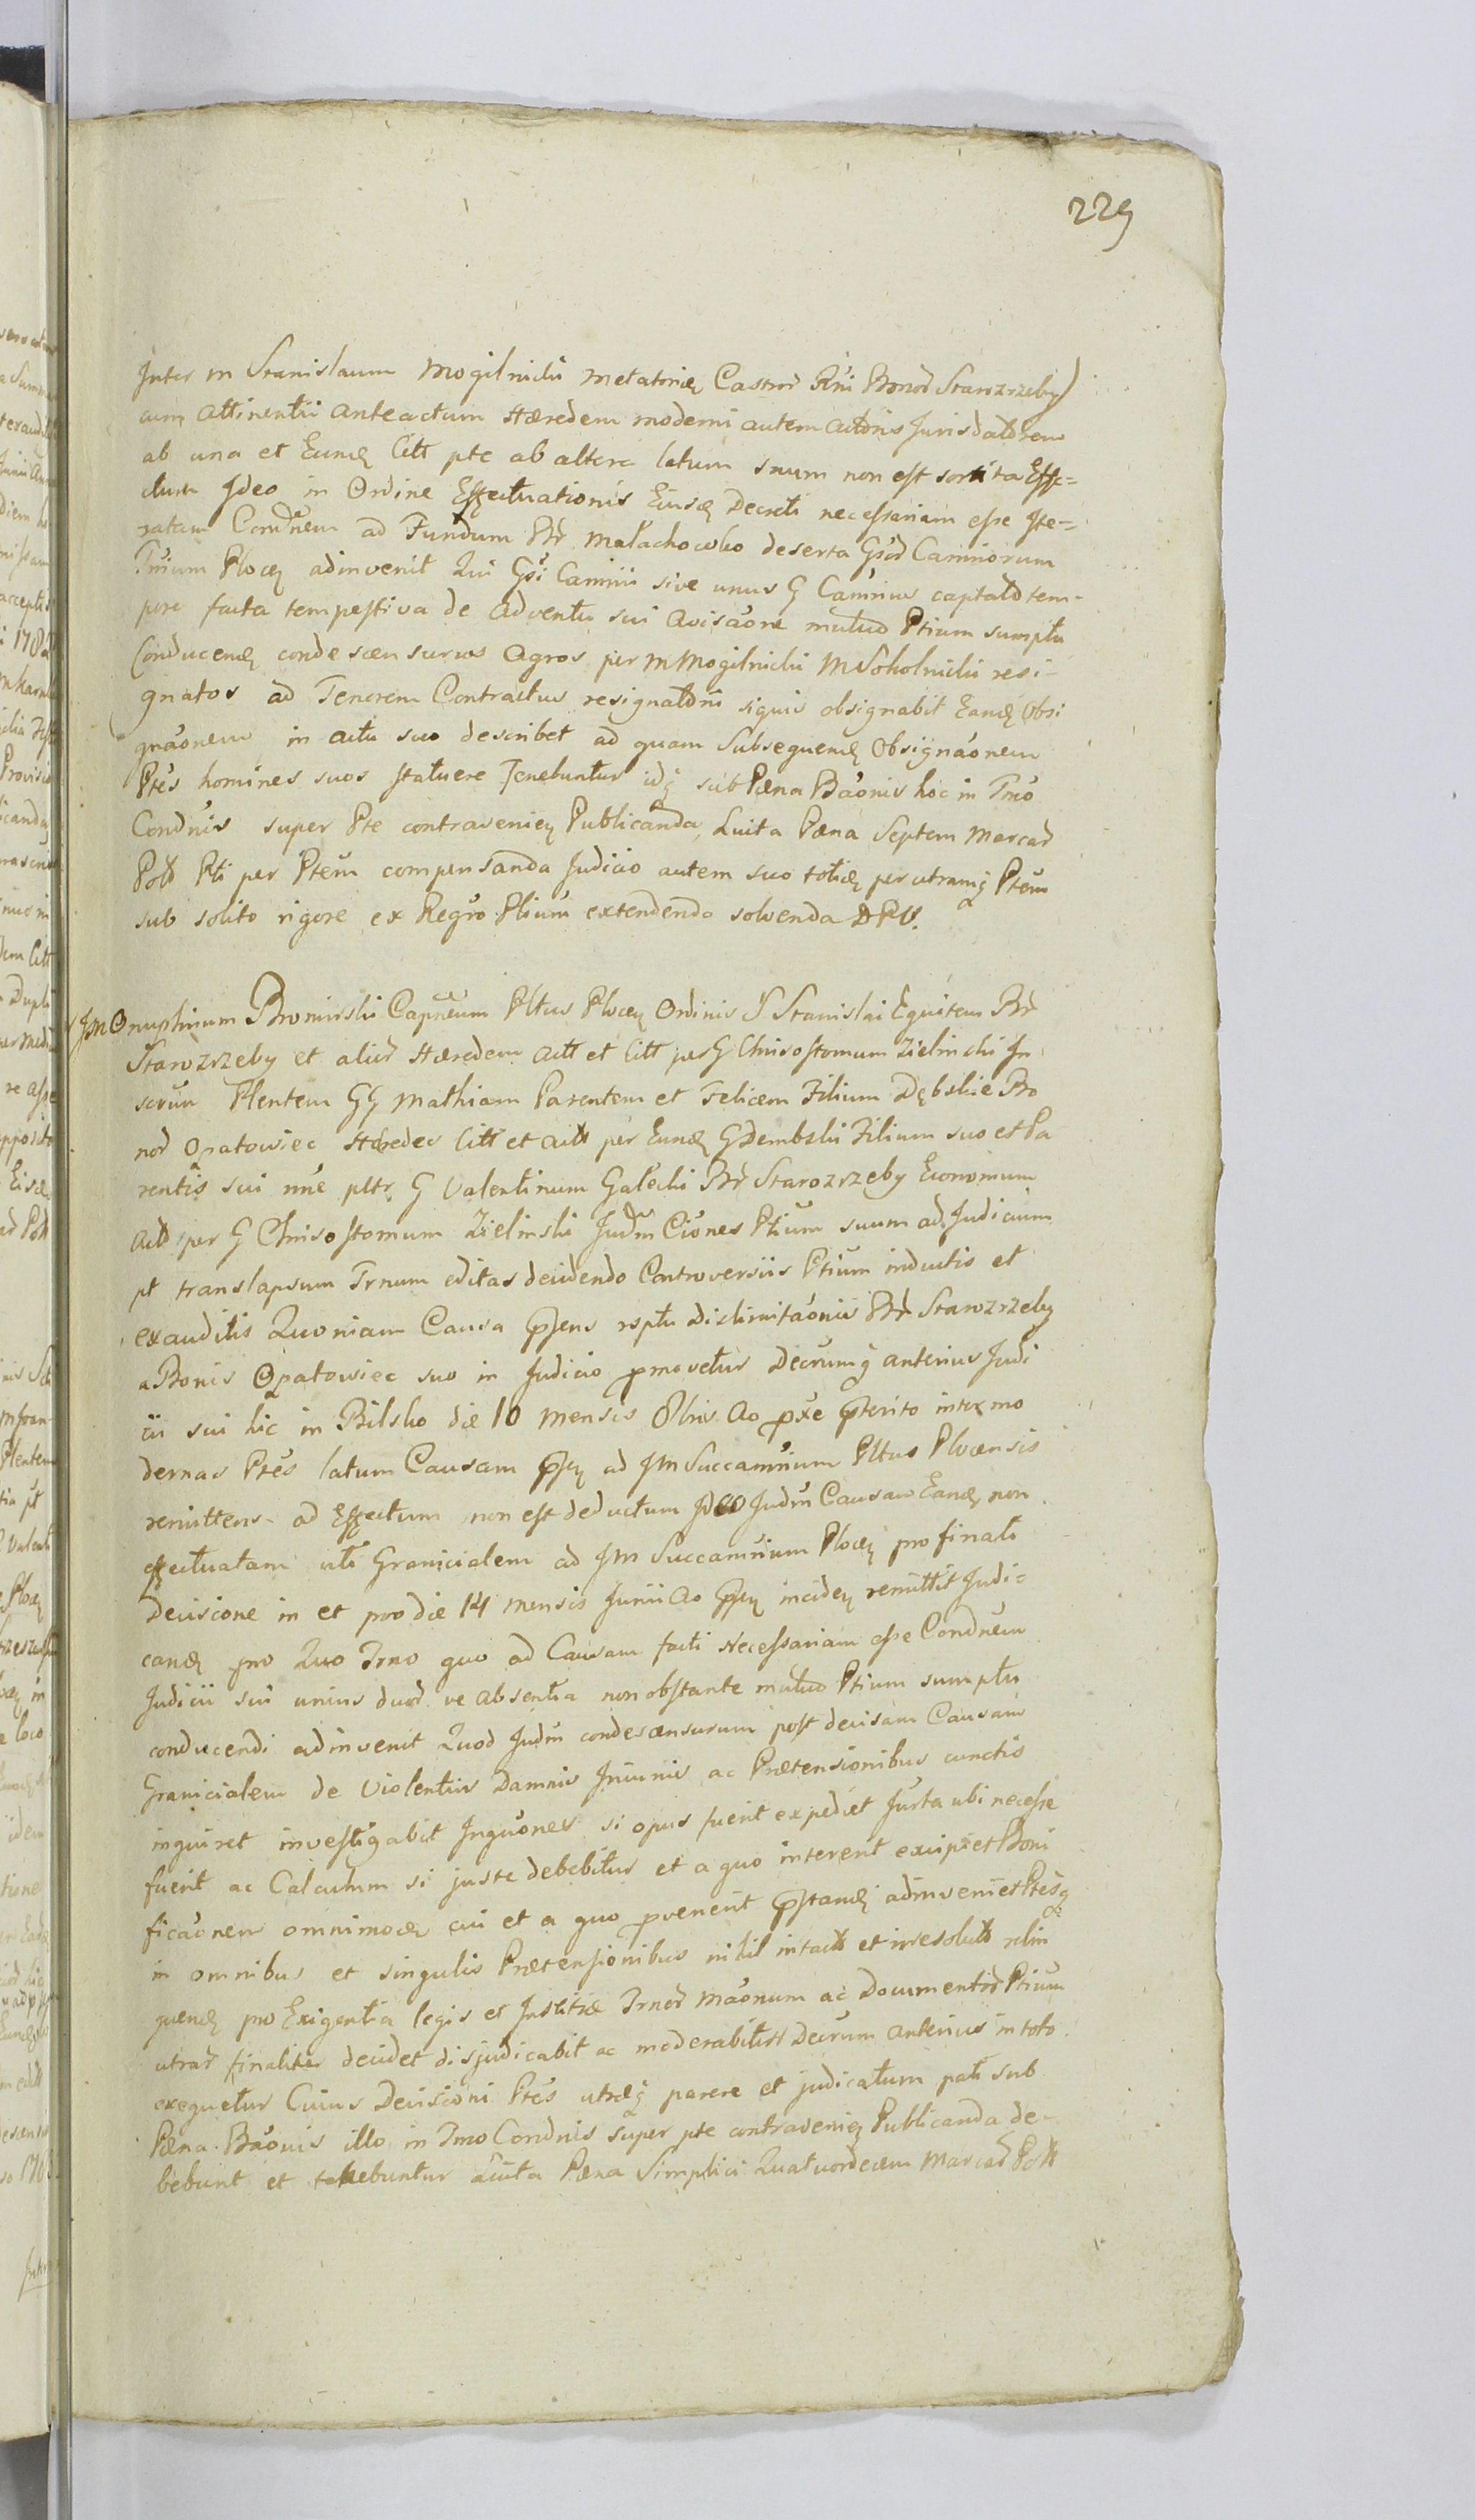 229
Inter m Stanislaum Mogilnicki metatoriæ Castror Rni Bonor Starozrzeby
cum attinentiis anteactum Hæredem moderni autem actoris Jurisdatorem
ab una et Eundꝫ Citt pte ab altera latum suum non est sortita Effe=
ctum Ideo in Ordine Effectuationis Eiusdꝫ Decreti necessariam esse Ite=
ratam Condnem ad Fundum Br Małachowko deserta Gsor Camriorum
Trium Plocꝫ adinvenit Qui Gsi Camrii sive unus G Camrius captato tem-
pore facta tempestiva de adventu sui avisaone mutuo Ptium sumptu
Conducendꝫ condescensurus Agros per m Mogilnicki M Sokolnicki resi-
gnatos ad Tenorem Contractus resignatorii siquis obsignabit Eandꝫ Obsi
gnaonem in actu suo describet ad quam Subsequendꝫ Obsignaonem
Ptes homines suos statuere Tenebuntur idqꝫ sub Pæna Baonis hoc in Tmo
Condnis super Pte contravenienꝫ Publicanda, Luita Pæna Septem Marcar
Poll Pti per Ptem compensanda Judicio autem suo totidꝫ per utramqꝫ Ptem
sub solito rigore ex Regro Ptium extendenda solvenda DPV.
JM Onuphrium Bromirski Capneum Pltus Plocen Ordinis S Stanislai Equitem Br
Starozrzeby et alior Hæredem Act et Citt per G Chrisostomum Zielinski In
scrun Plentem GG Mathiam Parentem et Felicem Filium Dębskie Bo
nor Opatowiec Hæredes Citt et Act per Eundꝫ G Dembski Filium suo et Pa
rentis sui nne pltr G Valentinum Gałecki Br Starozrzeby Economum
act per G Chrisostomum Zielinski Judm Ciones Ptium suum ad Judicium
pt translapsum Trnum editas decidendo Controversiis Ptium inductis et
exauditis Quoniam Causa psens rsptu Dislimitaonis Br Starozrzeby
a Bonis Opatowiec suo in Judicio pmovetur Decrumqꝫ anterius Judi
cii sui hic in Bilsko die 10 Mensis 8bris Ao pxe pterito inter mo
dernas Ptes latum Causam psen ad JM Succamrium Pltus Plocensis
remittens ad Effectum non est deductum Ideo Judm Causam Eandꝫ non
effectuatam uti Granicialem ad JM Succamrium Plocen pro finali
Decisione in et pro die 14 mensis Junii Ao psen inciden remittit Judi=
candꝫ pro Quo Trno quo ad Causam facti Necessariam esse Condnem
Judicii sui unius duor ve absentia non obstante mutuo Ptium sumptu
conducendi adinvenit Quod Judm condescensurum post decisam Causam
Granicialem de Violentiis Damnis Iniuriis ac Prætensionibus cunctis
inquiret investigabit Inquones si opus fuerit expediet Jurta ubi necesse
fuerit ac Calculum si juste debebitur et a quo intererit excipiet Boni
ficaonem omnimodꝫ cui et a quo pvenerit pstandꝫ adinveniet Ptesqꝫ
in omnibus et singulis Prætensionibus nihil intact et irresolut relin
quendꝫ pro Exigentia legis et Justitiæ Trnor Maonum ac Documentor Ptium
utrar finaliter decidet disjudicabit ac moderabitur Decrum anterius in toto
exequetur Cuius Decisioni Ptes utræqꝫ parere et judicatum pati sub
Pæna Baonis illo in Tmo Condnis super pte contravenien Publicanda de-
bebunt et tenebuntur Luita Pæna Simplici Quatuordecem Marcar Poll